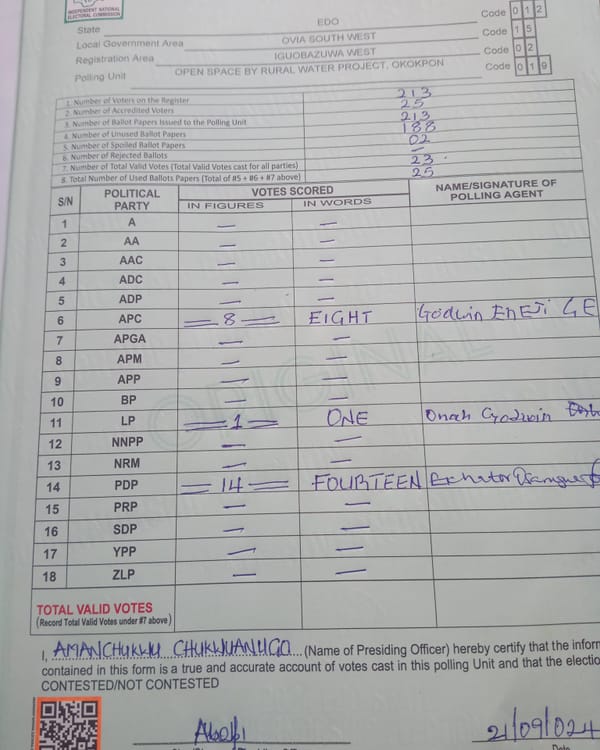 INDEPENDENT NATIONAL
ELECTORAL COMMISSION
State EDO Code 0 1 2
Local Government Area OVIA SOUTH WEST Code 1 5
Registration Area IGUOBAZUWA WEST Code 0 2
Polling Unit OPEN SPACE BY RURAL WATER PROJECT, OKOKPON Code 0 1 9
1. Number of Voters on the Register 213
2. Number of Accredited Voters 25
3. Number of Ballot Papers Issued to the Polling Unit 213
4. Number of Unused Ballot Papers 188
5. Number of Spoiled Ballot Papers 02
6. Number of Rejected Ballots –
7. Number of Total Valid Votes (Total Valid Votes cast for all parties) 23
8. Total Number of Used Ballots Papers (Total of #5 + #6 + #7 above) 25
S/N POLITICAL PARTY VOTES SCORED NAME/SIGNATURE OF POLLING AGENT
IN FIGURES IN WORDS
1 A — —
2 AA — —
3 AAC — —
4 ADC — —
5 ADP — —
6 APC =8= EIGHT Godwin EnEJi GE
7 APGA — —
8 APM — —
9 APP — —
10 BP — —
11 LP =1= ONE Onah Godwin
12 NNPP — —
13 NRM — —
14 PDP =14= FOURTEEN
15 PRP — —
16 SDP — —
17 YPP — —
18 ZLP — —
ORIGINAL
TOTAL VALID VOTES
(Record Total Valid Votes under #7 above)
I, AMANCHUKWU CHUKWUANUGO (Name of Presiding Officer) hereby certify that the inform
contained in this form is a true and accurate account of votes cast in this polling Unit and that the electio
CONTESTED/NOT CONTESTED
21/09/024
Date